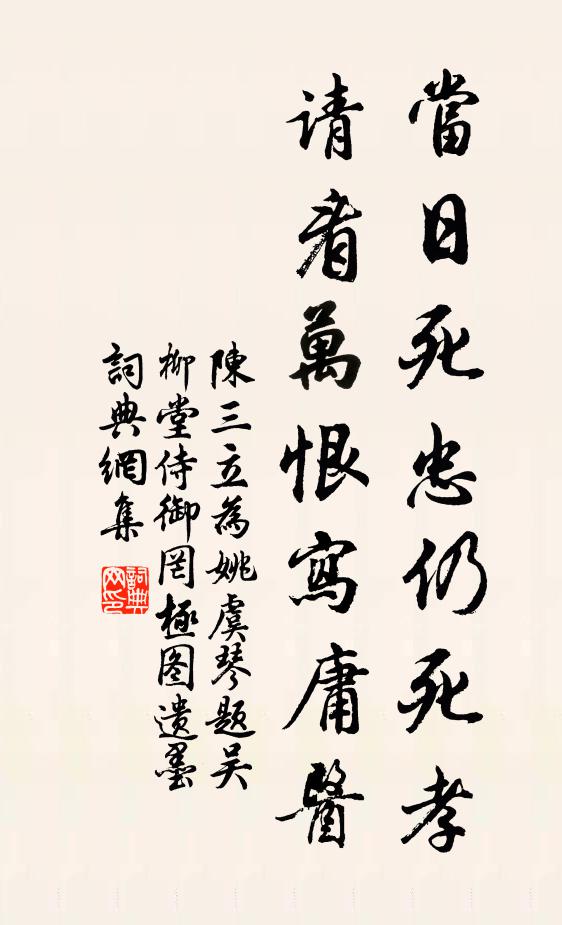 當日死忠仍死孝
请看萬恨寫庸醫
陳三立為姚虞琴題吴
柳堂侍御罔極图遺墨
詞典網集
詞典
网印